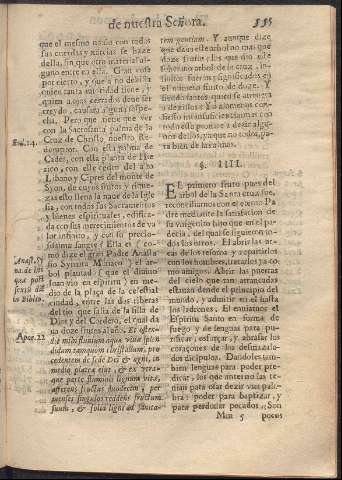 de nuestra Señora. 555
que el mesmo nauio con todos
sus cuerdas y xarcias se haze
della, sin que otro material al-
guno entre en ella. Gran caso
por cierto, y que no se diera a
quien tanta autoridad tiene, y
quien a ojos cerrados deue ser
creydo, causara alguna sospe-
cha. Pero que tiene que ver
con la Sacrosanta palma de la
Cruz de Christo nuestro Re-
Cades, con esta planta de Ie-
rico, con este cedro del
Libano y Cipres del monte de
Syon, de cuyos frutos y rique-
zas esta llena la naue de la Igle-
sia, con todos sus Sacramentos
y bienes espirituales, edifica-
da con sus merecimientos de va
lor infinito, y con su precio-
sissima sangre? Ella es (co-
mo dize el gran Padre Anasta-
sio Synaita Monaco) el ar-
bol plantad (que el diuino
Ioan vio en espiritu) en me-
dio de la plaça de la celestial
ciudad, entre las dos riberas
del rio que salia de la silla de
Dios y del Cordero, el qual da
ua doze frutos al año. Et osten-
dit mihi fluuium aquæ viuæ splen
didum tamquam christallum, pro
cedentem de sede Dei & agni, in
medio plateæ eius, & ex vtra-
que parte fluminis lignum vitæ,
afferens fructus duodecim, per
menses singulos reddens fructum
suum, & folia ligni ad sanita-
tem gentium. Y aunque dize
que daua este arbol no mas que
doze frutos, los que dio este
soberano arbol de la cruz, in-
finitos fueron significados en
el numero finito de doze. Y
siendo tantos como se atreuera
a dezillos? Yo alomenos con-
fiesso mi insuficiencia, y aun-
que esto me promete a dezir algu-
nos dellos, ya que no todos, pa-
ra bien de las almas.
§. IIII.
EL primero fruto pues del
arbol de la Santa cruz fue,
reconciliarnos con el eterno Pa
dre mediante la satisfacion de
su vnigenito hijo que en el pa-
decia, del qual se siguieron to-
dos los otros. El abrir las ar-
cas de los tesoros y repartirlos
con los hombres, tratarlos ya co
mo amigos. Abrir las puertas
del cielo que tan atrancadas
estauan desde el principio del
mundo, y admitir en el hasta
los ladrones. El embiarnos el
Espiritu Santo en forma de
fuego y de lenguas para puri-
ficar, esforçar, y abrasar los
coraçones de los desmazala-
dos dicipulos. Dandoles tam-
bien lenguas para poder predi-
car, los que anteriormente no las te-
nian para osar dezir vna pala-
bra, poder para baptizar, y
para perdonar pecados. Son
Mm 5 pocos
Exil. 14.
Anast. Sy
na de his
quæ post
passus dix
in Biblio.
Apoc. 22.